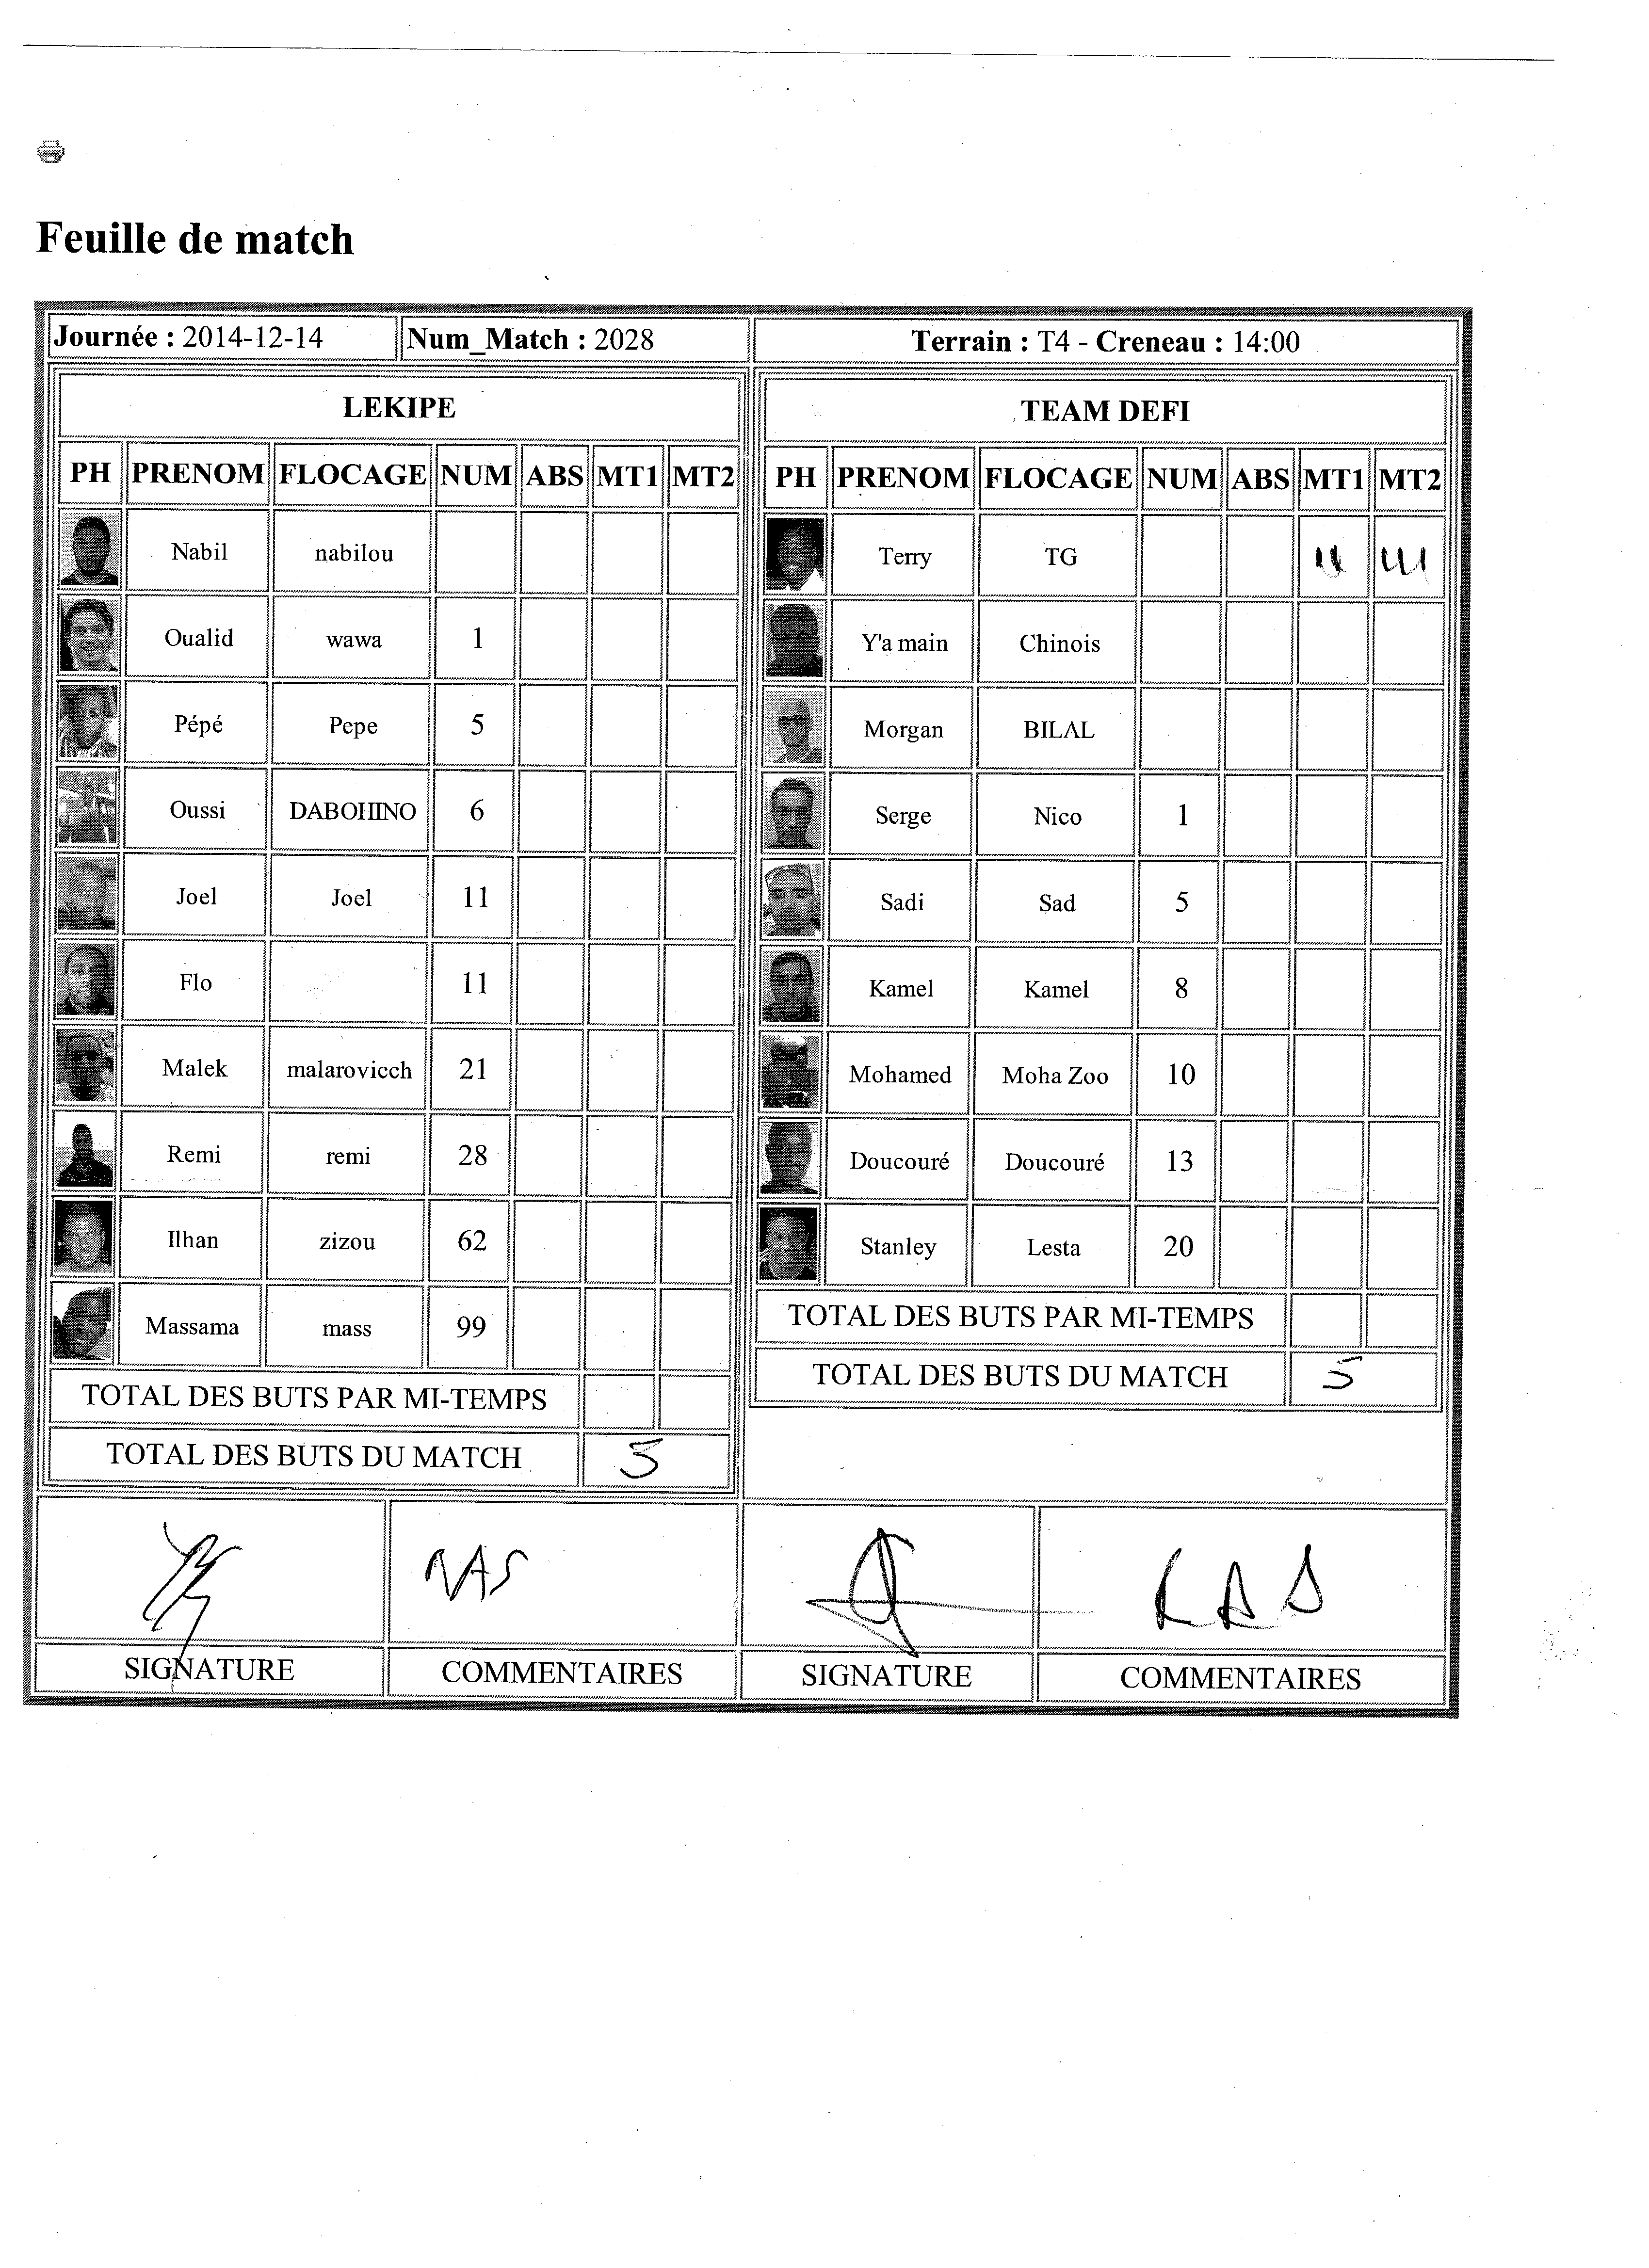 Feuille de match
Journée : 2014-12-14 Num_Match : 2028 Terrain : T4 - Creneau : 14:00
LEKIPE
PH PRENOM FLOCAGE NUM ABS MT1 MT2
Nabil nabilou
Oualid wawa 1
Pépé Pepe 5
Oussi DABOHINO 6
Joel Joel 11
Flo 11
Malek malarovicch 21
Remi remi 28
Ilhan zizou 62
Massama mass 99
TOTAL DES BUTS PAR MI-TEMPS
TOTAL DES BUTS DU MATCH
TEAM DEFI
PH PRENOM FLOCAGE NUM ABS MT1 MT2
Terry TG
Y'a main Chinois
Morgan BILAL
Serge Nico 1
Sadi Sad 5
Kamel Kamel 8
Mohamed Moha Zoo 10
Doucouré Doucouré 13
Stanley Lesta 20
TOTAL DES BUTS PAR MI-TEMPS
TOTAL DES BUTS DU MATCH 5
RAS
RAS
SIGNATURE COMMENTAIRES SIGNATURE COMMENTAIRES